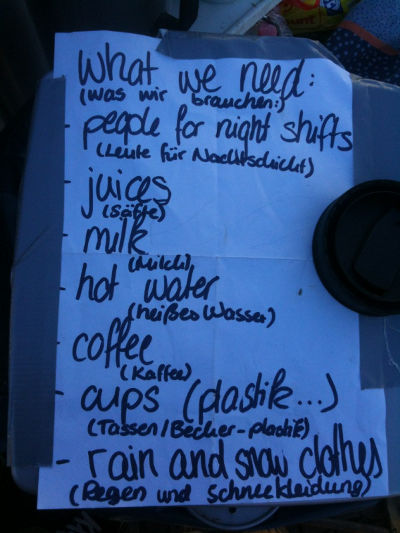 what we need:
(was wir brauchen:)
- people for night shifts
(Leute für Nachtschicht)
- juices
(Säfte)
- milk
(Milch)
- hot water
(heißes Wasser)
- coffee
(Kaffee)
- cups (plastik...)
(Tassen/Becher-plastik)
- rain and snow clothes
(Regen und Schneekleidung)